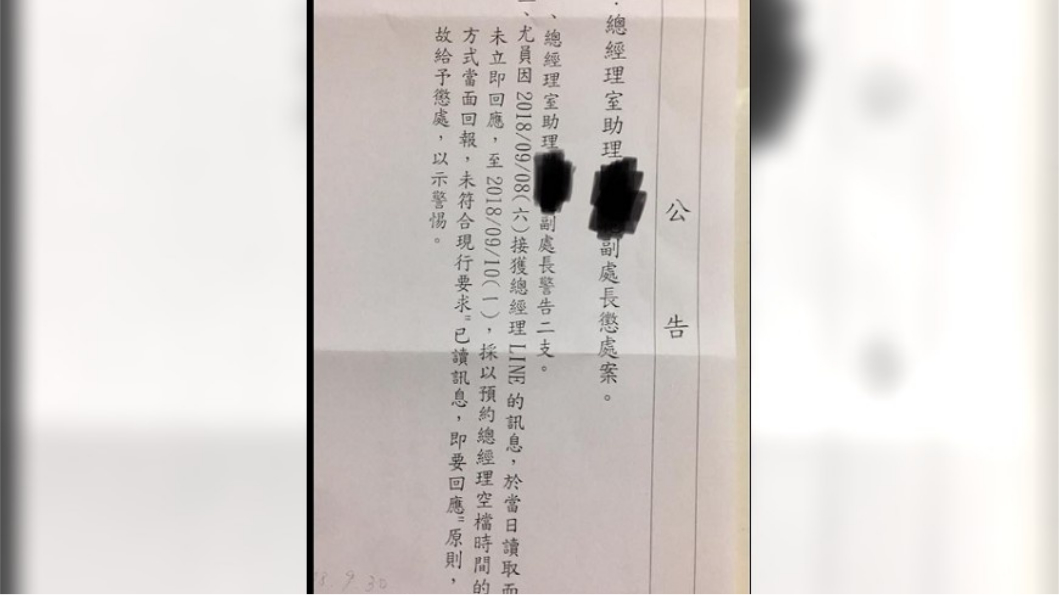 公告
總經理室助理副處長懲處案。
、總經理室助理副處長警告二支。
、尤員因2018/09/08(六)接獲總經理LINE的訊息，於當日讀取而
未立即回應，至2018/09/10(一)，採以預約總經理空檔時間的
方式當面回報，未符合現行要求"已讀訊息，即要回應"原則，
故給予懲處，以示警惕。
9.30